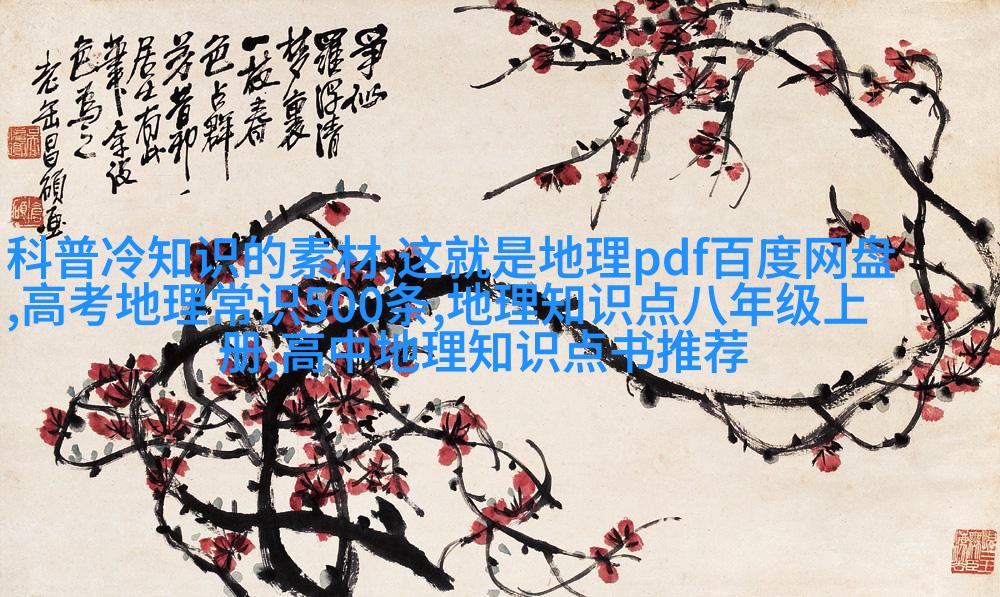 爭似
羅浮清
夢裏
一枝春
色占群
芳昔邪
居士有此
色為之
老缶昌碩画
科普冷知识的素材,这就是地理pdf百度网盘
,高考地理常识500条,地理知识点八年级上
册,高中地理知识点书推荐